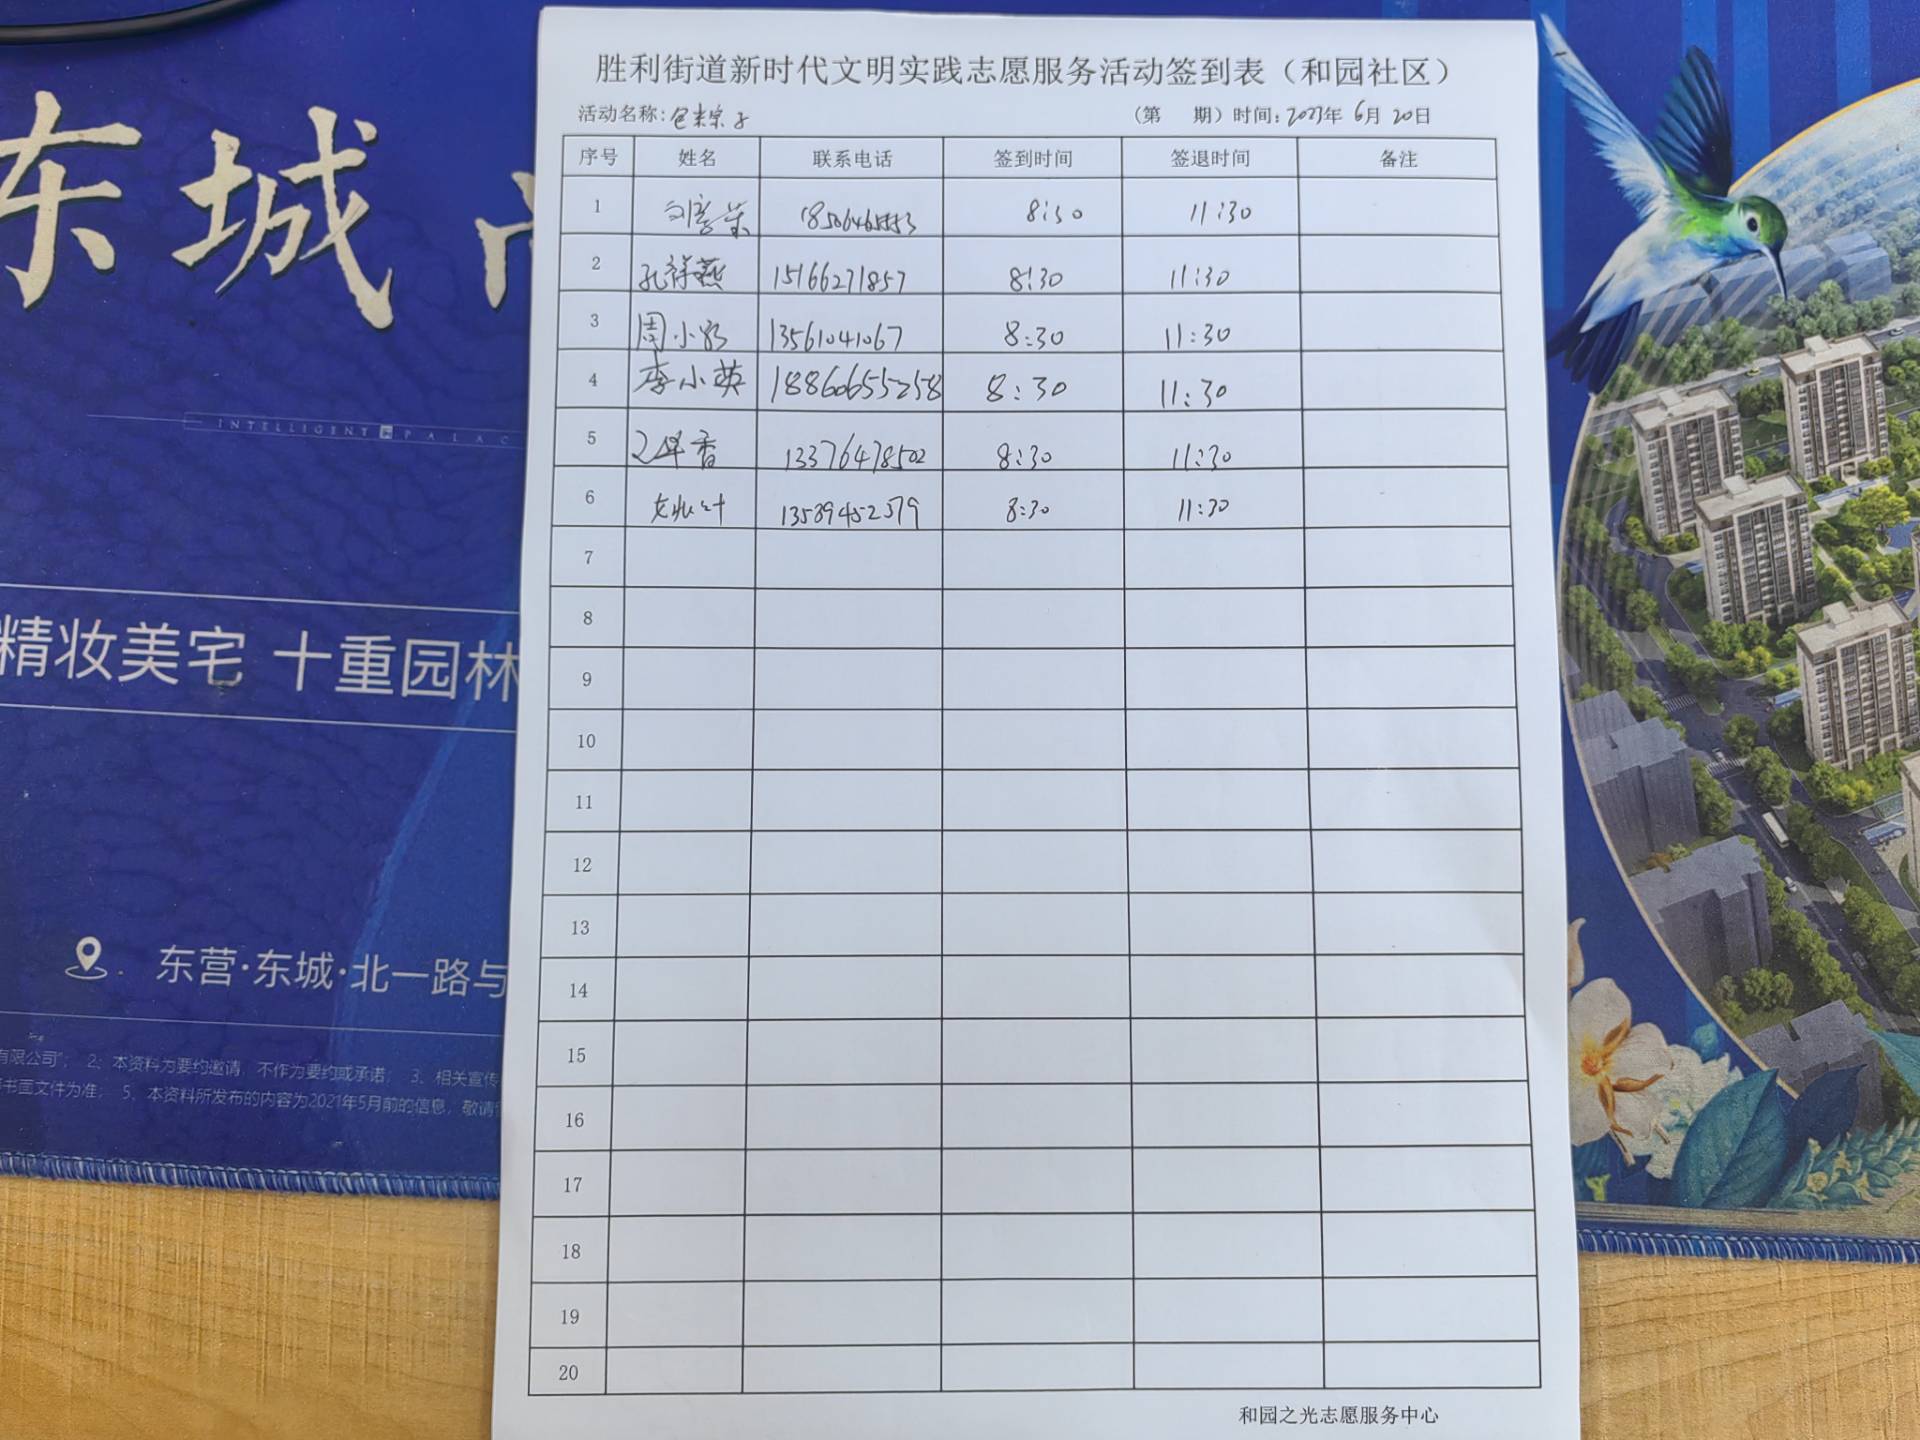 胜利街道新时代文明实践志愿服务活动签到表（和园社区）
活动名称：包粽子 （第 期）时间：2023年 6月 20日
序号 姓名 联系电话 签到时间 签退时间 备注
1 8:30 11:30
2 孔祥燕 15166271857 8:30 11:30
3 周小 13561041067 8:30 11:30
4 李小英 18860655258 8:30 11:30
5 香 13376478502 8:30 11:30
6 13589452579 8:30 11:30
7
8
9
10
11
12
13
14
15
16
17
18
19
20
和园之光志愿服务中心
东城
INTELLIGENT PALAC
精妆美宅 十重园林
东营·东城·北一路与
有限公司”； 2、本资料为要约邀请，不作为要约或承诺； 3、相关宣传
书面文件为准； 5、本资料所发布的内容为2021年5月前的信息，敬请